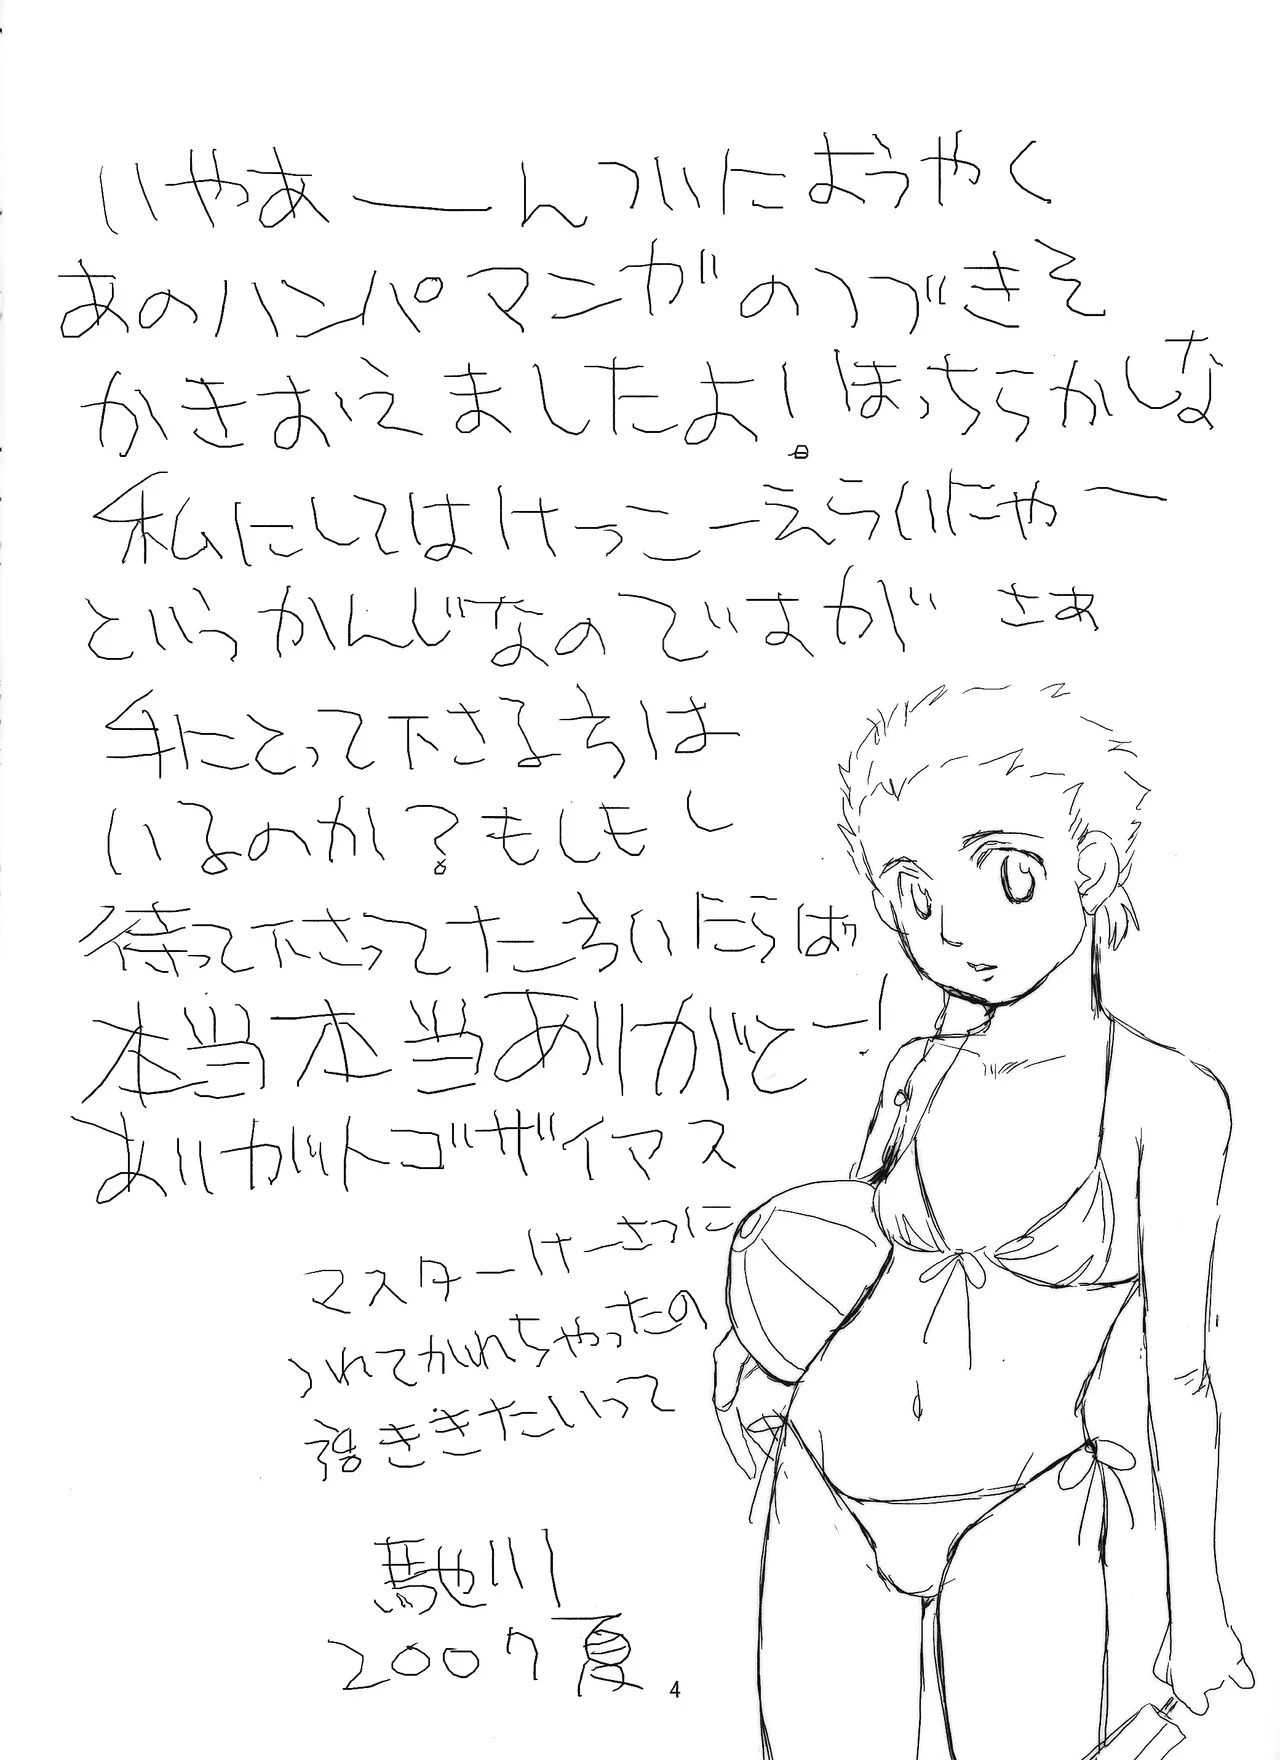 いやあーんついにようやく
あのハンパマンガのつづきを
かきおえましたよ!ほっちらかしな
私にしてはけっこーえらいにゃー
というかんじなのですが さぁ
手にとって下さる方は
いるのか?もしもし
待って下さってた方いたらばッ
本当本当ありがとー!
ありがっトゴザイマス
マスターけーさつに
つれてかれちゃったの
きききたいって
馳川
2007夏
4